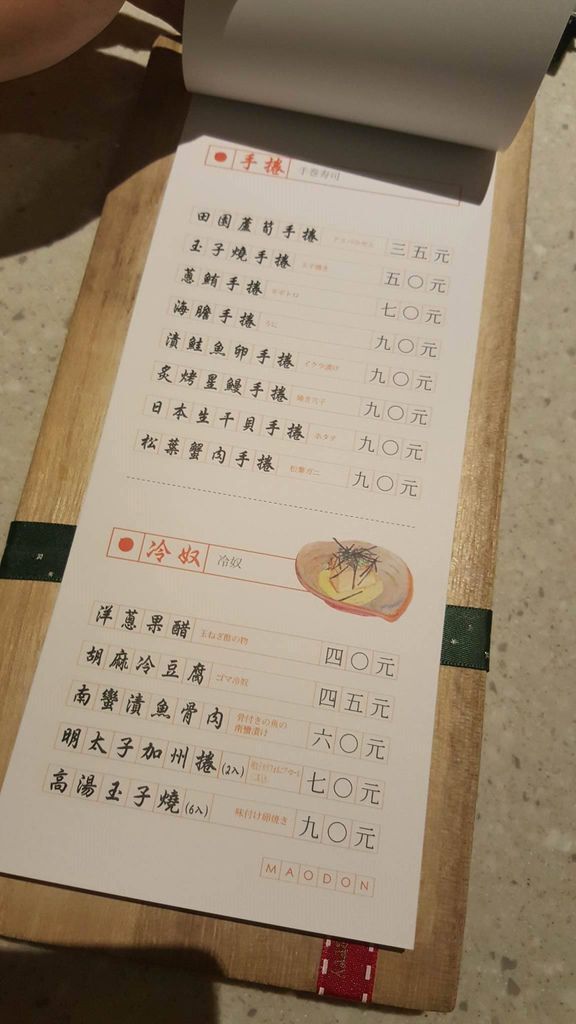 手捲 手巻寿司
田園蘆筍手捲 アスパラガス 三五元
玉子燒手捲 玉子焼き 五〇元
蔥鮪手捲 ネギトロ 七〇元
海膽手捲 うに 九〇元
漬鮭魚卵手捲 イクラ漬け 九〇元
炙烤星鰻手捲 焼き穴子 九〇元
日本生干貝手捲 ホタテ 九〇元
松葉蟹肉手捲 松葉ガニ 九〇元
冷奴 冷奴
洋蔥果醋 玉ねぎ酢の物 四〇元
胡麻冷豆腐 ゴマ冷奴 四五元
南蠻漬魚骨肉 骨付きの魚の
南蠻漬け 六〇元
明太子加州捲(2入) 七〇元
高湯玉子燒(6入) 味付け卵焼き 九〇元
MAODON